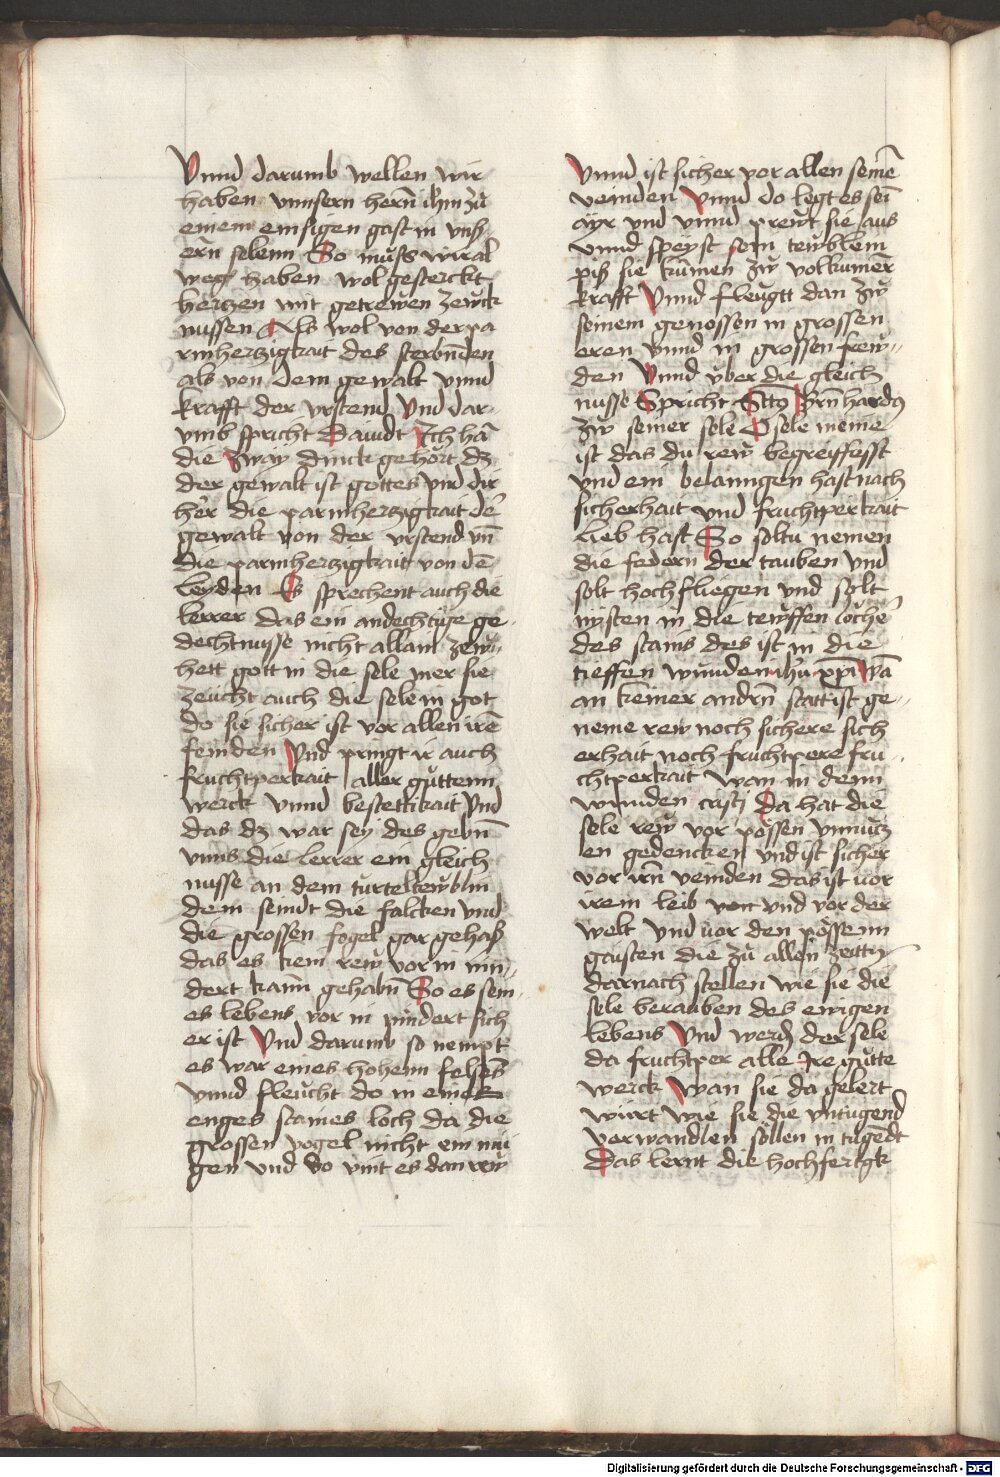 Vnnd darumb wellen wir
haben vnnsern hern̄ ihm̄ zů
einem einsigen gast in vnß
ern̄ selenn So můss wir al
weg haben wol gesterckt
hertzen mit getrewen zewck
nussen Als wol von der pa
rmhertzigkait des sterbn̄den
als von dem gewalt vnnd
krafft der vrstend Vnd dar-
vmb spricht Dauidt Jch hā
die zway dinck gehört dz
der gewalt ist gottes vnd dir
her̄ die parmhertzigkait dē
gewalt von der vrstend vn̄
die parmhertzigkait von dē
leyden Es sprechent auch die
lerrer das ein andechtige ge
dechtnusse nicht allain zew-
hett gott in die sele mer sie
zeucht auch die sele in got
do sie sicher ist vor allen irē
feinden Vnd pringt ir auch
fruchtperkait aller güttenn
werck vnnd bestettikait Vnd
das dz war sey des gebn̄
vnns die lerrer ein gleich
nusse an dem turteltewblin
dem seindt die falcken vnd
die grossen fogel gar gehaß
das es kem rew vor in nin-
dert kann gehabn̄ So es sein
es lebens vor in nindert sich
er ist Vnd darumb so nempt
es war eines hohenn felsens
vnnd fleucht do in eines
enges staines loch da die
grossen vogel nicht ein mü
gen vnd do vint es dan rew
Vnnd ist sicher vor allen seinē
veinden Vnnd do legt es sein
ayr vnd vnnd prewt sie aus
vnnd speyst sein tewblein
piß sie kumen zw volkumer̄
krafft Vnnd fleugtt dan zw
seinem genossen in grossen
eren vnnd in grossen frew-
den Vnnd vber die gleich
nusse Spricht Sctō Bern̄hardꝯ
zw seiner sele O sele meine
ist das du rew begreiffesst
vnd ein belanngen hast nach
sicherhait vnd fruchtperkait
lieb hast So soltu nemen
die federn der tauben vnd
solt hoch fliegen vnd solt
nysten in die tewffen löchē
des stains des ist in die
tieffen wunden ihū xp̄i Wā
an keiner andrn̄ stat ist ge-
neme rew noch sichere sich
erhait noch fruchtpere fru-
chtperkait wan in denn
wunden cristi da hat die
sele rew vor pössen vnnucz
en gedencken vnd ist sicher
vor irn̄ veinden das ist vor
irem leib vnd vor der
welt vnd vor den pössenn
gaisten die zů allen zeittn̄
darnach stellen wie sie die
sele berauben des ewigen
lebens Vnd werdn̄ der sele
da fruchtper alle Ire gutte
werck Wan sie da gelert
wirt wie sie die vntugend
verwandlen söllen in tugēdt
Das lernt die hochfertgk
Digitalisierung gefördert durch die Deutsche Forschungsgemeinschaft - DFG